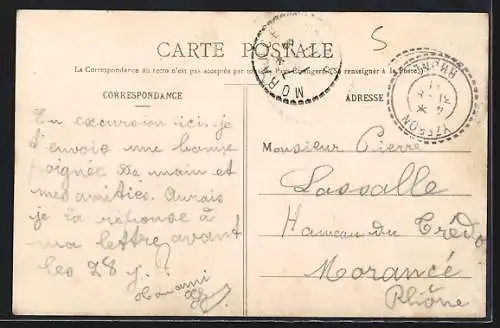 5
CARTE POSTALE
La Correspondance au recto n'est pas acceptée par tous les Pays Étrangers (Se renseigner à la Poste)
CORRESPONDANCE
ADRESSE
MORNANT
YZERON
RHONE
En excursion ici, je
t'envoie une bonne
poignée de main et
mes amitiés. Aurais
je la réponse à
ma lettre avant
les 28 j. ?
Ton ami
Monsieur Pierre
Lassalle
Hameau du Crédo
Morancé
Rhône